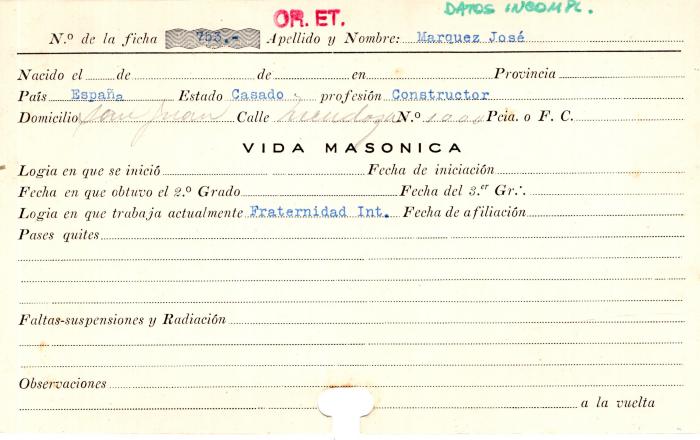 OR. ET. DATOS INCOMPL.
N.º de la ficha 753.- Apellido y Nombre: Marquez José
Nacido el de de en Provincia
País España Estado Casado profesión Constructor
Domicilio San Juan Calle Mendoza N.º Pcia. o F. C.
VIDA MASONICA
Logia en que se inició Fecha de iniciación
Fecha en que obtuvo el 2.º Grado Fecha del 3.er Gr.·.
Logia en que trabaja actualmente Fraternidad Int. Fecha de afiliación
Pases quites
Faltas-suspensiones y Radiación
Observaciones
a la vuelta